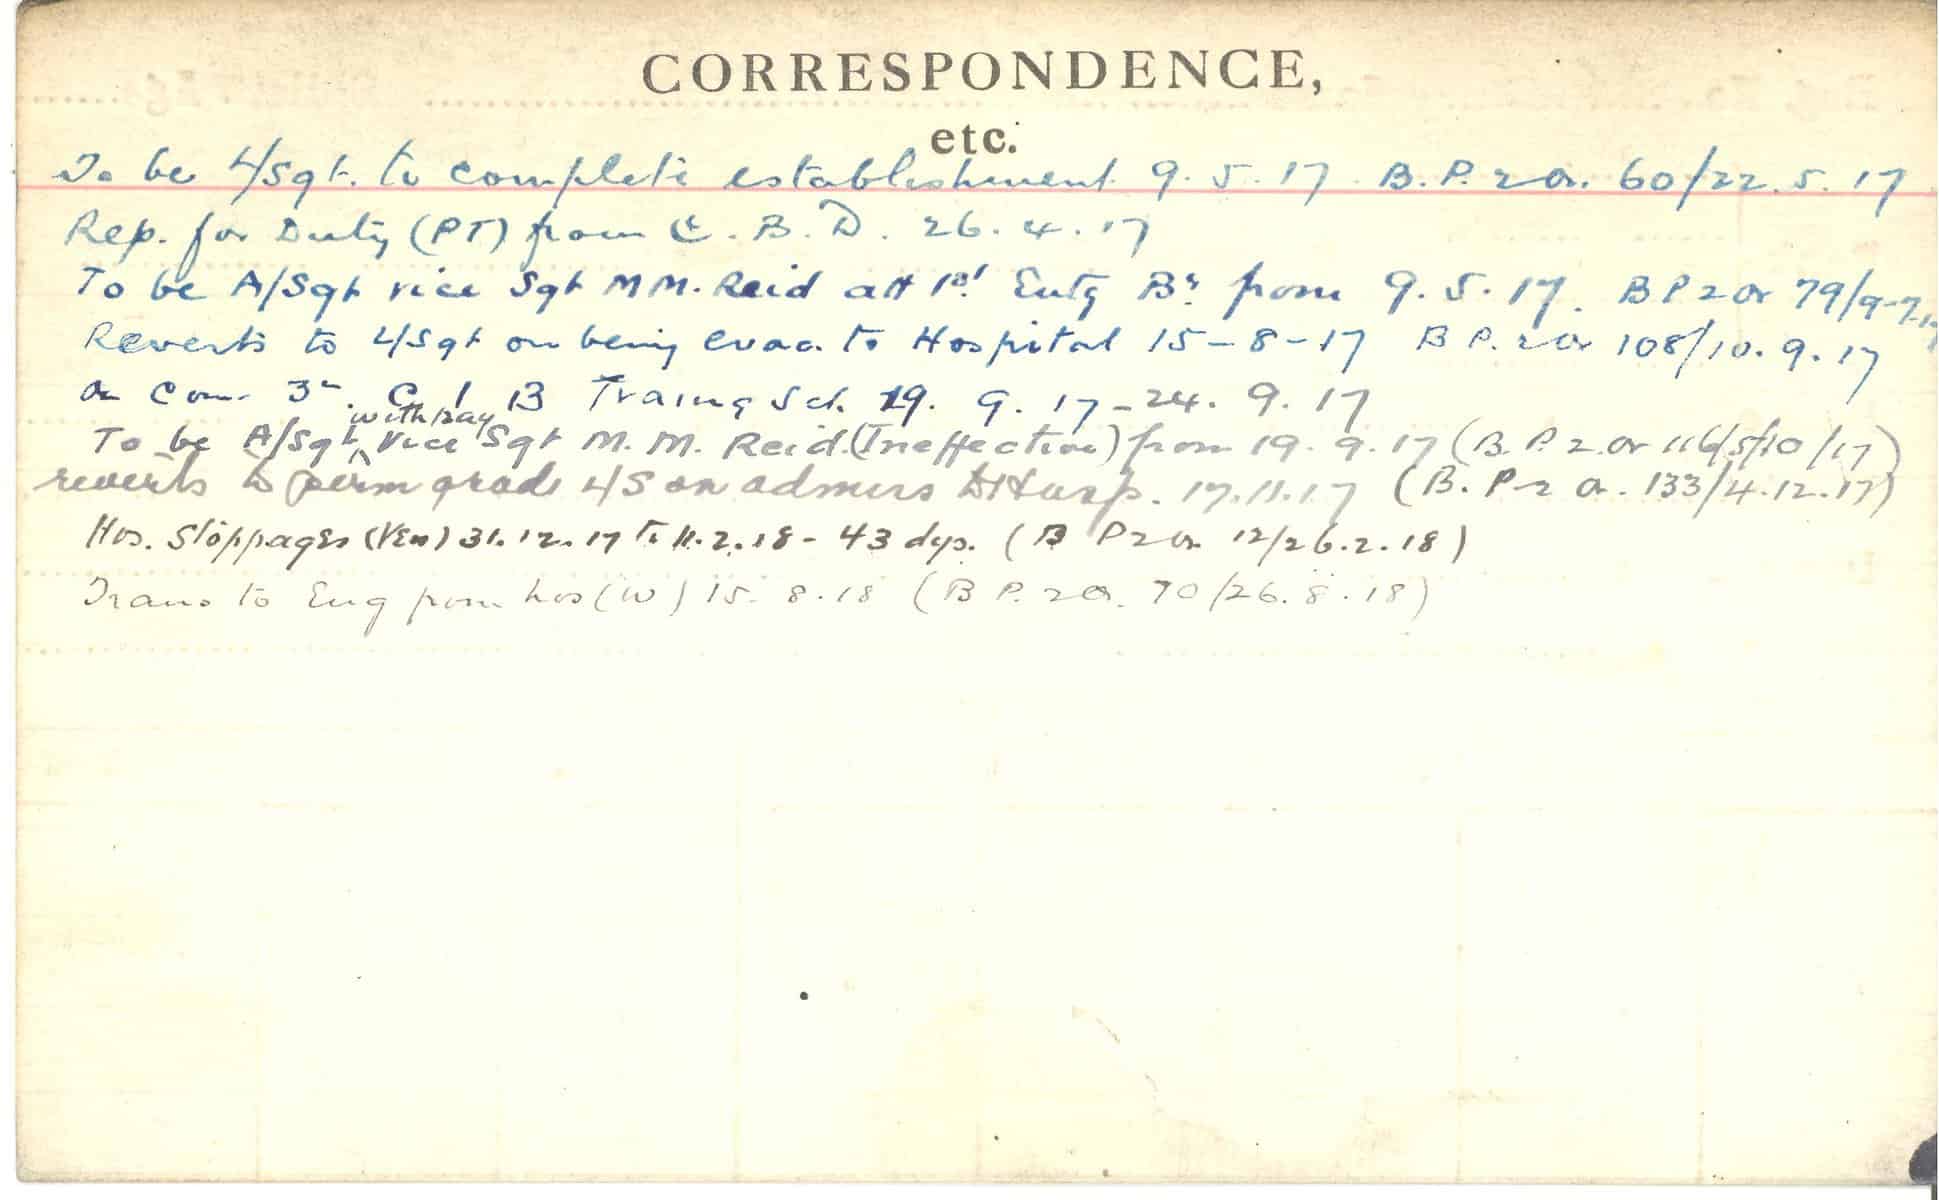 CORRESPONDENCE,
etc.
To be L/Sgt. to complete establishment 9.5.17 B.P.2 Or. 60/22.5.17
Rep. for Duty (PT) from C.B.D. 26.4.17
To be A/Sgt vice Sgt M.M. Reid att 1st from 9.5.17. B P 2 Or 79/9-7-17
Reverts to L/Sgt on being evac. to Hospital 15-8-17 B P. 2 Or 108/10.9.17
on Com. 3 C 1 B Traing Sch. 19. 9. 17 - 24. 9. 17
with pay
To be A/Sgt ^ vice Sgt M. M. Reid. (Ineffective) from 19. 9. 17 (B. P. 2. Or 116/5/10/17)
reverts to perm grade L/S on admiss to Hosp. 17.11.17 (B. P 2 O. 133/4.12.17)
Hos. Stoppages (Ven) 31.12.17 to 11.2.18 - 43 dys. (B P 2 Or 12/26.2.18)
Trans to Eng from hos (W) 15. 8. 18 (B P. 2 O. 70/26. 8. 18)